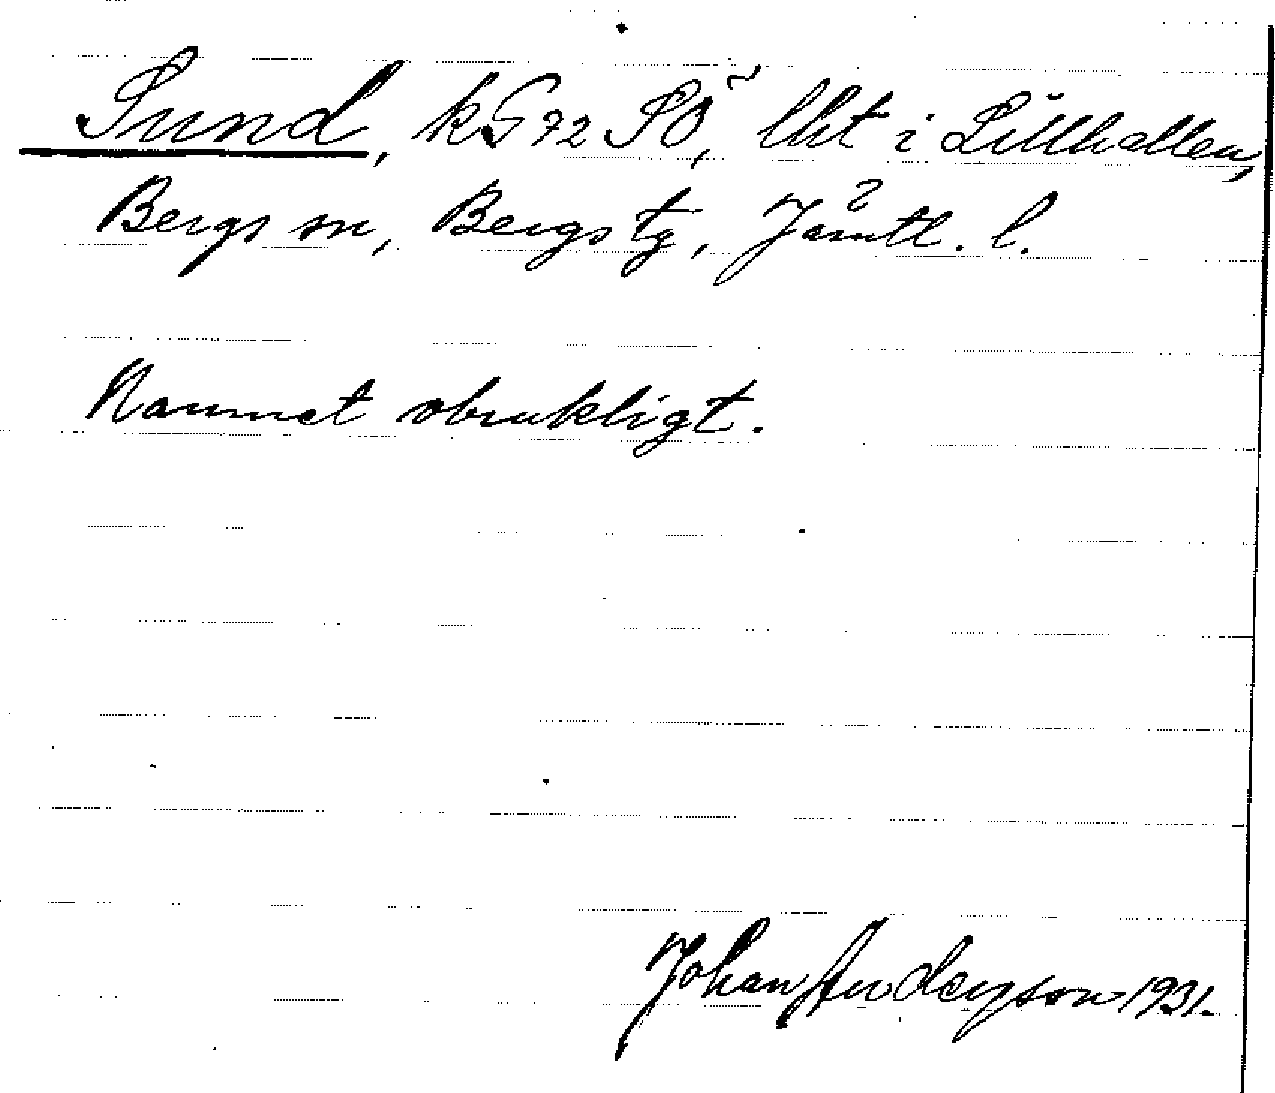 Sund, kG 72 SÖ, lht i Lillhallen,
Bergs sn, Bergs tg, Jämtl. l.
Namnet obrukligt.
Johan Anderson 1931.